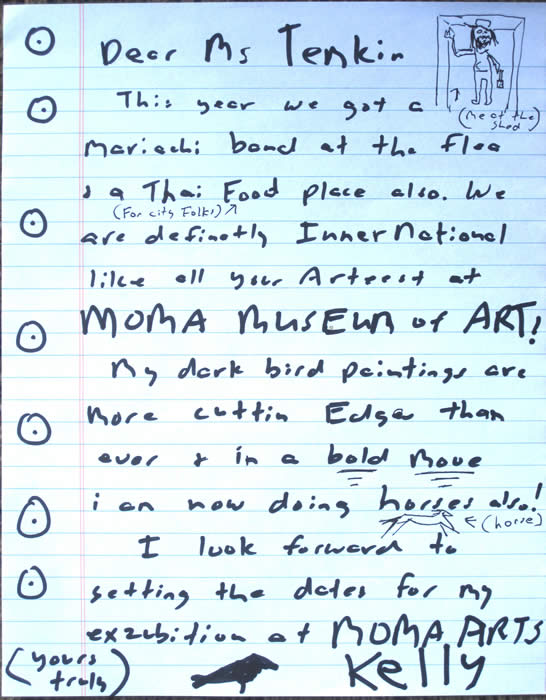 Dear Ms Temkin
(me at the shed)
This year we got a
mariachi band at the flea
& a Thai Food place also. We
(For city Folks)
are definetly InnerNational
like all your Arteest at
MOMA MUSEUM of ART!
My dark bird paintings are
more cuttin Edge than
ever & in a bold move
i am now doing horses also!
(horse)
I look forward to
setting the dates for my
exzubition at MOMA ARTS
(yours truly)
Kelly